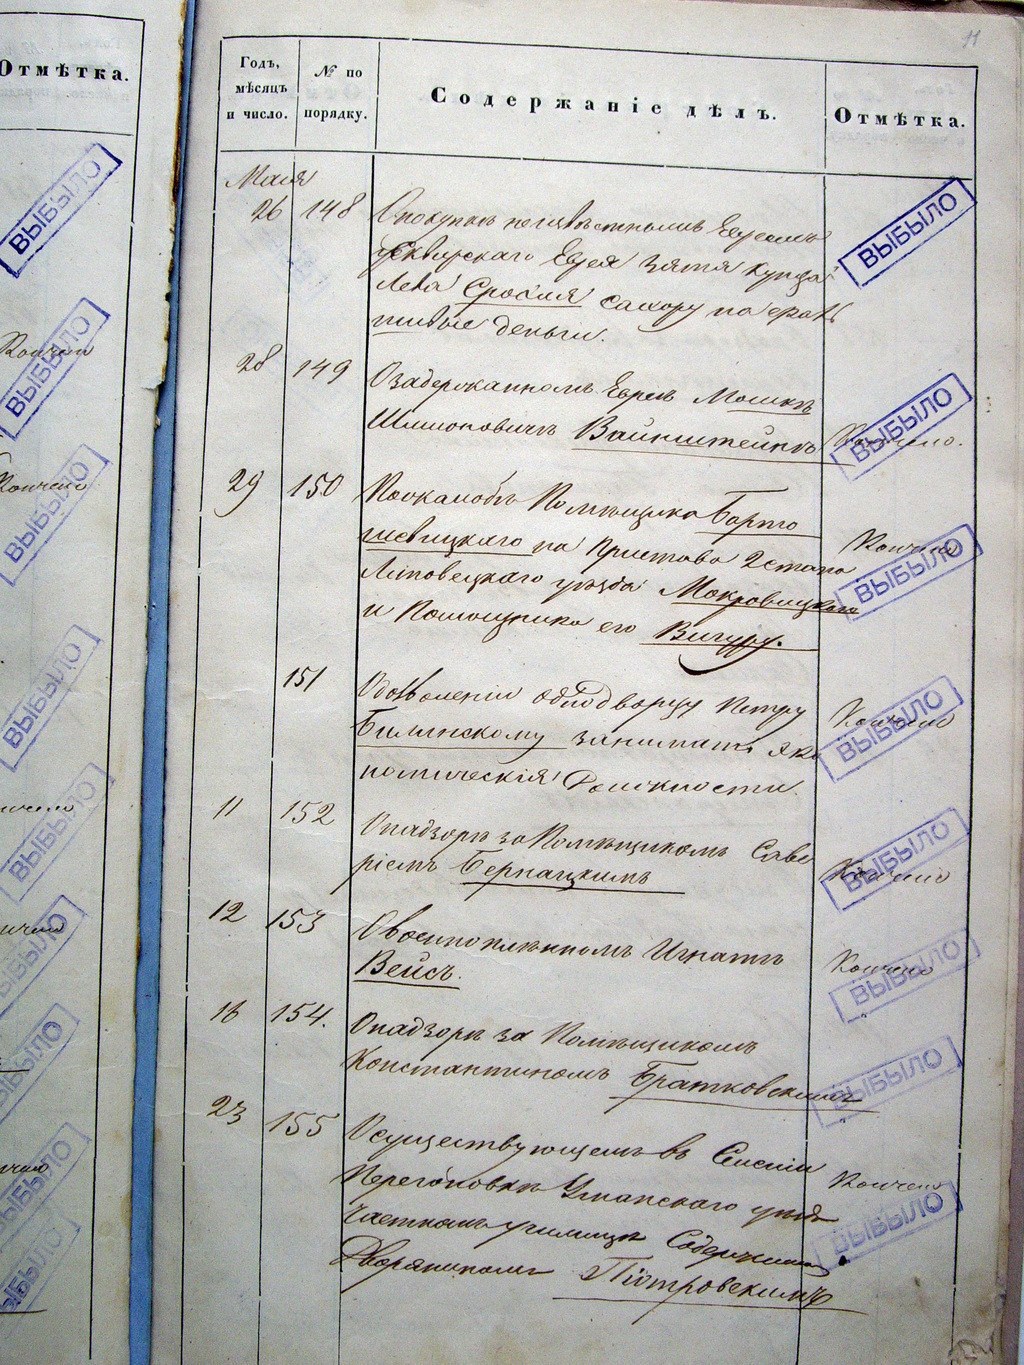 Отмѣтка.
ВЫБЫЛО
ВЫБЫЛО
ВЫБЫЛО
ВЫБЫЛО
ВЫБЫЛО
ВЫБЫЛО
ВЫБЫЛО
ВЫБЫЛО
ВЫБЫЛО
11
Годъ,
мѣсяцъ
и число.
№ по
порядку.
Содержаніе дѣлъ.
Отмѣтка.
Мая
26 148 О покупкѣ неизвѣстнымъ Евреемъ
Сквирскаго Еврея зятя купца
Лейба сахору на фаль
шивые деньги.
ВЫБЫЛО
28 149 О задержанномъ Евреѣ Мошкѣ
Шлиомовичѣ Вайнштейнѣ
Кончено.
ВЫБЫЛО
29 150 По жалобѣ Помѣщика Барто
шевицкаго на Пристава 2 стана
Липовецкаго уѣзда Мокровицкаго
и Помощника его Вигуру.
Кончено
ВЫБЫЛО
151 О дозволеніи однодворцу Петру
Билинскому занимать эко
номическія должности.
Кончено
ВЫБЫЛО
11 152 О надзорѣ за Помѣщикомъ Саве
ріемъ Бернацкимъ
Кончено
ВЫБЫЛО
12 153 О военноплѣнномъ Игнатѣ
Вейсъ.
Кончено
ВЫБЫЛО
16 154. О надзорѣ за Помѣщикомъ
Константиномъ Братковскимъ
ВЫБЫЛО
23 155 О существующемъ въ Селеніи
Перегоновкѣ Уманскаго уѣзда
Частномъ училищѣ Содержимомъ
Дворяниномъ Піотровскимъ
Кончено
ВЫБЫЛО